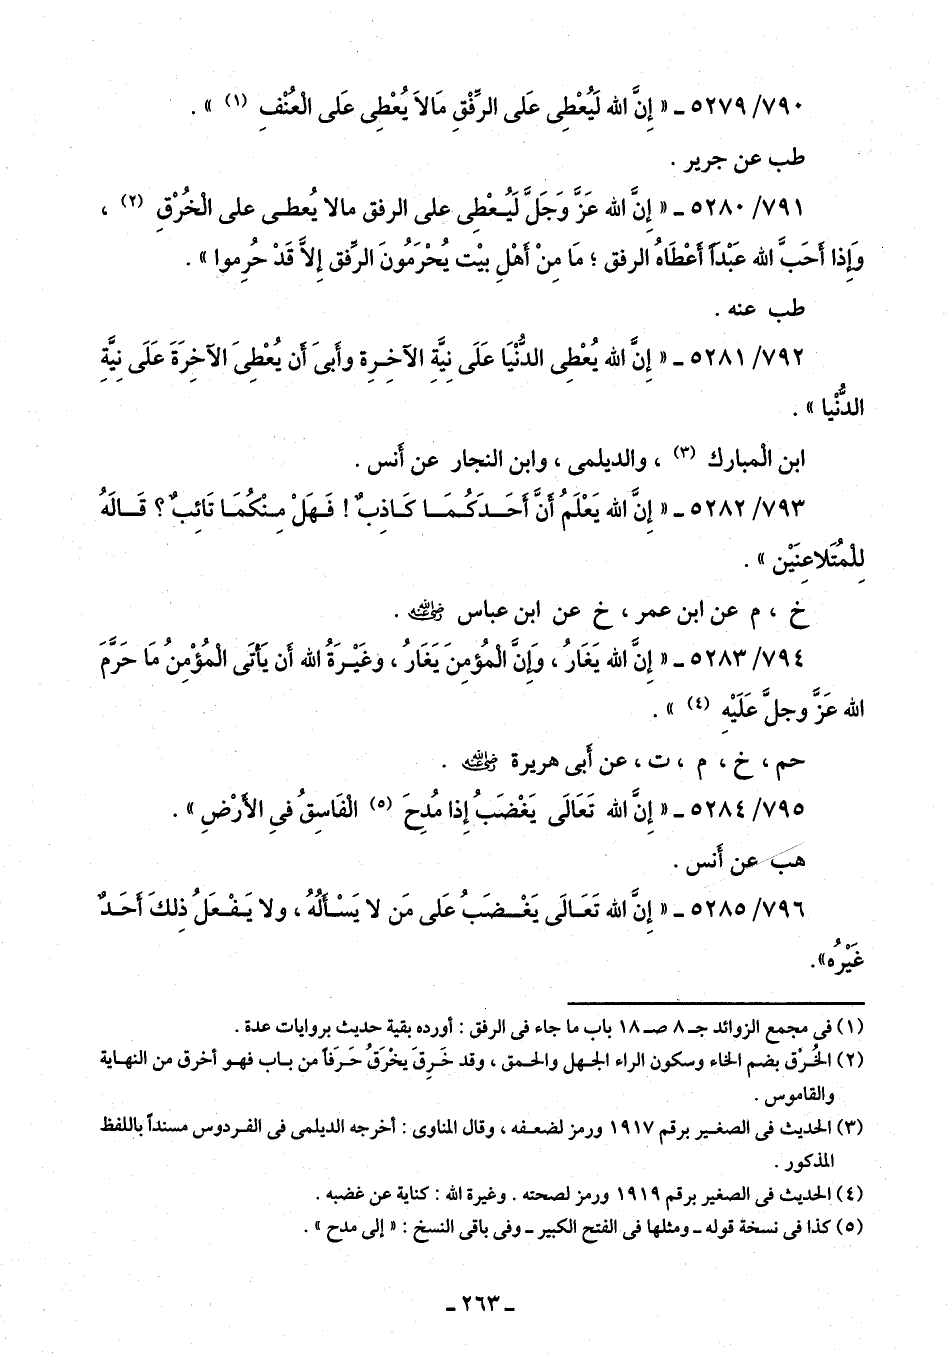 ٥٢٧٩/٧٩٠ ـ « إِنَّ الله لَيُعْطِى عَلَى الرِّفْقِ مَالاَ يُعْطِى عَلَى الْعُنْفِ (١) » .
طب عن جرير .
٥٢٨٠/٧٩١ ـ « إِنَّ الله عَزَّ وَجَلَّ لَيُعْطِى على الرفق مالا يُعطى على الْخُرْقِ (٢) ،
وَإِذا أَحَبَّ الله عَبْدَاً أَعْطَاهُ الرفق ؛ مَا مِنْ أَهْلِ بيْت يُحْرَمُونَ الرِّفق إِلاَّ قَدْ حُرِموا » .
طب عنه .
٥٢٨١/٧٩٢ ـ « إِنَّ الله يُعْطِى الدُّنْيَا عَلَى نِيَّةِ الآخِرة وأَبىَ أَن يُعْطِىَ الآخِرَةَ عَلَى نِيَّةِ
الدُّنْيا » .
ابن الْمبارك (٣) ، والديلمى ، وابن النجار عن أَنس .
٥٢٨٢/٧٩٣ ـ « إِنَّ الله يَعْلَمُ أَنَّ أَحَدَكُمَا كَاذِبٌ ! فَهَلْ مِنْكُمَا تَائِبٌ ؟ قَالَهُ
لِلْمُتَلاعِنَيْن » .
خ ، م عن ابن عمر ، خ عن ابن عباس ﷺ .
٥٢٨٣/٧٩٤ ـ « إِنَّ الله يَغَارُ ، وَإِنَّ الْمُؤمِنَ يَغَارُ ، وغَيْرَةُ الله أَن يَأْتَى الْمُؤْمِنُ مَا حَرَّمَ
الله عَزَّ وجلَّ عَلَيْهِ (٤) » .
حم ، خ ، م ، ت ، عن أَبى هريرة ﷺ .
٥٢٨٤/٧٩٥ ـ « إِنَّ الله تَعَالَى يَغْضَبُ إِذا مُدِحَ (٥) الْفَاسِقُ فىِ الأَرْضِ » .
هب عن أَنس .
٥٢٨٥/٧٩٦ ـ « إِنَّ الله تَعَالَى يَغْضَبُ عَلَى مَن لا يَسْأَلُهُ ، ولا يَفْعَلُ ذلِكَ أَحَدٌ
غَيْرُه».
(١) فى مجمع الزوائد جـ ٨ صـ ١٨ باب ما جاء فى الرفق : أورده بقية حديث بروايات عدة .
(٢) الخُرْق بضم الخاء وسكون الراء الجهل والحمق ، وقد خَرِقَ يخْرَقُ خَرَقاً من باب فهو أخرق من النهاية
والقاموس .
(٣) الحديث فى الصغير برقم ١٩١٧ ورمز لضعفه ، وقال المناوى : أخرجه الديلمى فى الفردوس مسنداً باللفظ
المذكور .
(٤) الحديث فى الصغير برقم ١٩١٩ ورمز لصحته . وغيرة الله : كناية عن غضبه .
(٥) كذا فى نسخة قوله ـ ومثلها فى الفتح الكبير ـ وفى باقى النسخ : « إلى مدح » .
ـ ٢٦٣ ـ